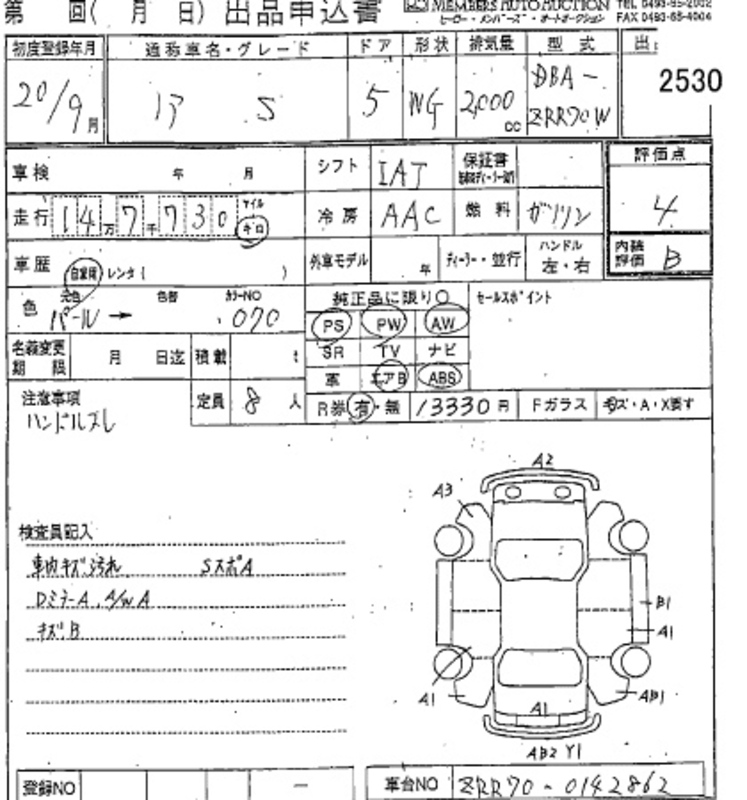 第 回( 月 日) 出品申込書
MEMBERS AUTO AUCTION
ヒーロー・メンバーズ・オートオークション
TEL 0493-65-2002
FAX 0493-65-4004
初度登録年月 通称車名・グレード ドア 形状 排気量 型式
20/9月 S 5 WG 2,000cc DBA-ZRR70W 2530
車検 年 月 シフト IAT 保証書 評価点
走行 14万7千730 マイル キロ 冷房 AAC 燃料 ガソリン 4
車歴 自家用 レンタ( ) 外車モデル 年 ディーラー・並行 ハンドル 左・右 内装評価 B
色 元色 パール → 色替 カラーNO 070 純正品に限り○ セールスポイント
PS PW AW
SR TV ナビ
名義変更期限 月 日迄 積載 t 革 エアB ABS
注意事項 定員 8 人 R券 有・無 13330円 Fガラス キズ・A・X要す
ハンドルズレ
A2
A3
検査員記入
車内キズ汚れ SスポA
DミラーA. A/W A
キズB
B1
A1
A1
AB1
A1
AB2 Y1
登録NO - 車台NO ZRR70-0142862